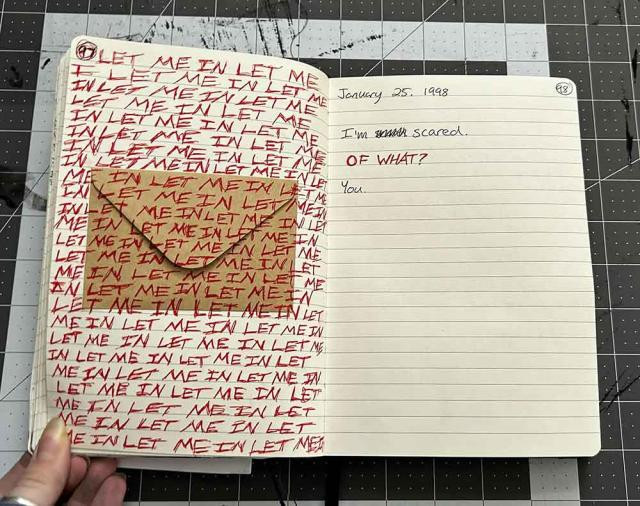 97
LET ME IN LET ME
LET ME IN LET ME
IN LET ME IN LET ME
LET ME IN LET ME
IN LET ME IN LET ME
ME IN LET ME IN
IN LET ME IN LET
ME IN LET ME IN LET
ME IN LET ME IN LET
IN LET ME IN LET
LET ME IN LET ME IN
ME IN LET ME IN LET
IN LET ME IN LET ME
LET ME IN LET ME IN
ME IN LET ME IN LET
IN LET ME IN LET ME
LET ME IN LET ME IN LET
ME IN LET ME IN LET ME IN
LET ME IN LET ME IN LET
IN LET ME IN LET ME IN LET
ME IN LET ME IN LET ME IN
LET ME IN LET ME IN LET
ME IN LET ME IN LET
ME IN LET ME IN LET
ME IN LET ME IN LET ME IN
98
January 25, 1998
I'm scared.
OF WHAT?
You.